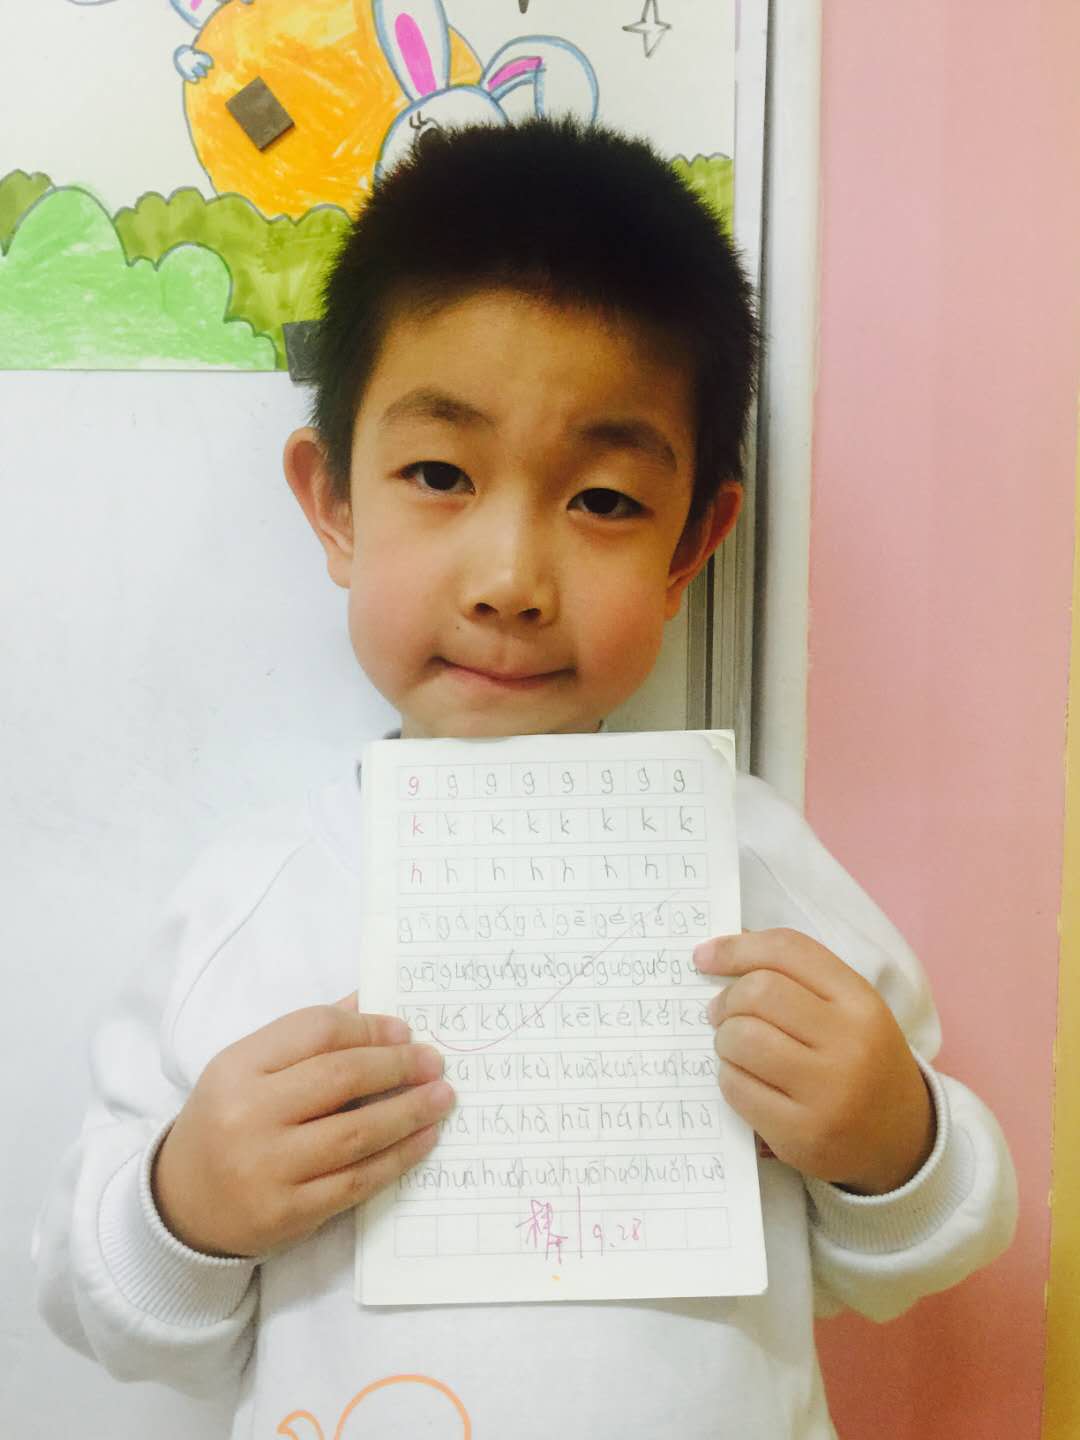 g g g g g g g g
k k k k k k k k
h h h h h h h h
gā gá gǎ gà gē gé gě gè
guā guá guǎ guà guō guó guǒ
kā ká kǎ kà kē ké kě kè
kú kǔ kù kuā kuá kuǎ kuà
há hǎ hà hū hú hǔ hù
huā huá huǎ huà huō huó huǒ huò
9.28